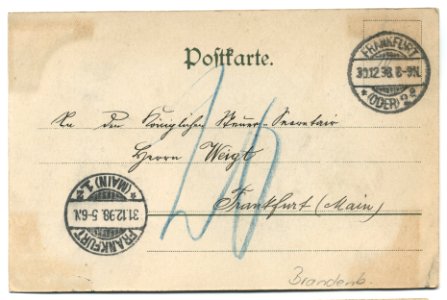 Postkarte.
FRANKFURT
30.12.98. 8-9N.
* (ODER) 2 *
An den Königlichen Steuer-Secretair
Herrn Weigt
Frankfurt (Main)
FRANKFURT
31.12.98. 5-6N.
* (MAIN) 1. *
Brandenb